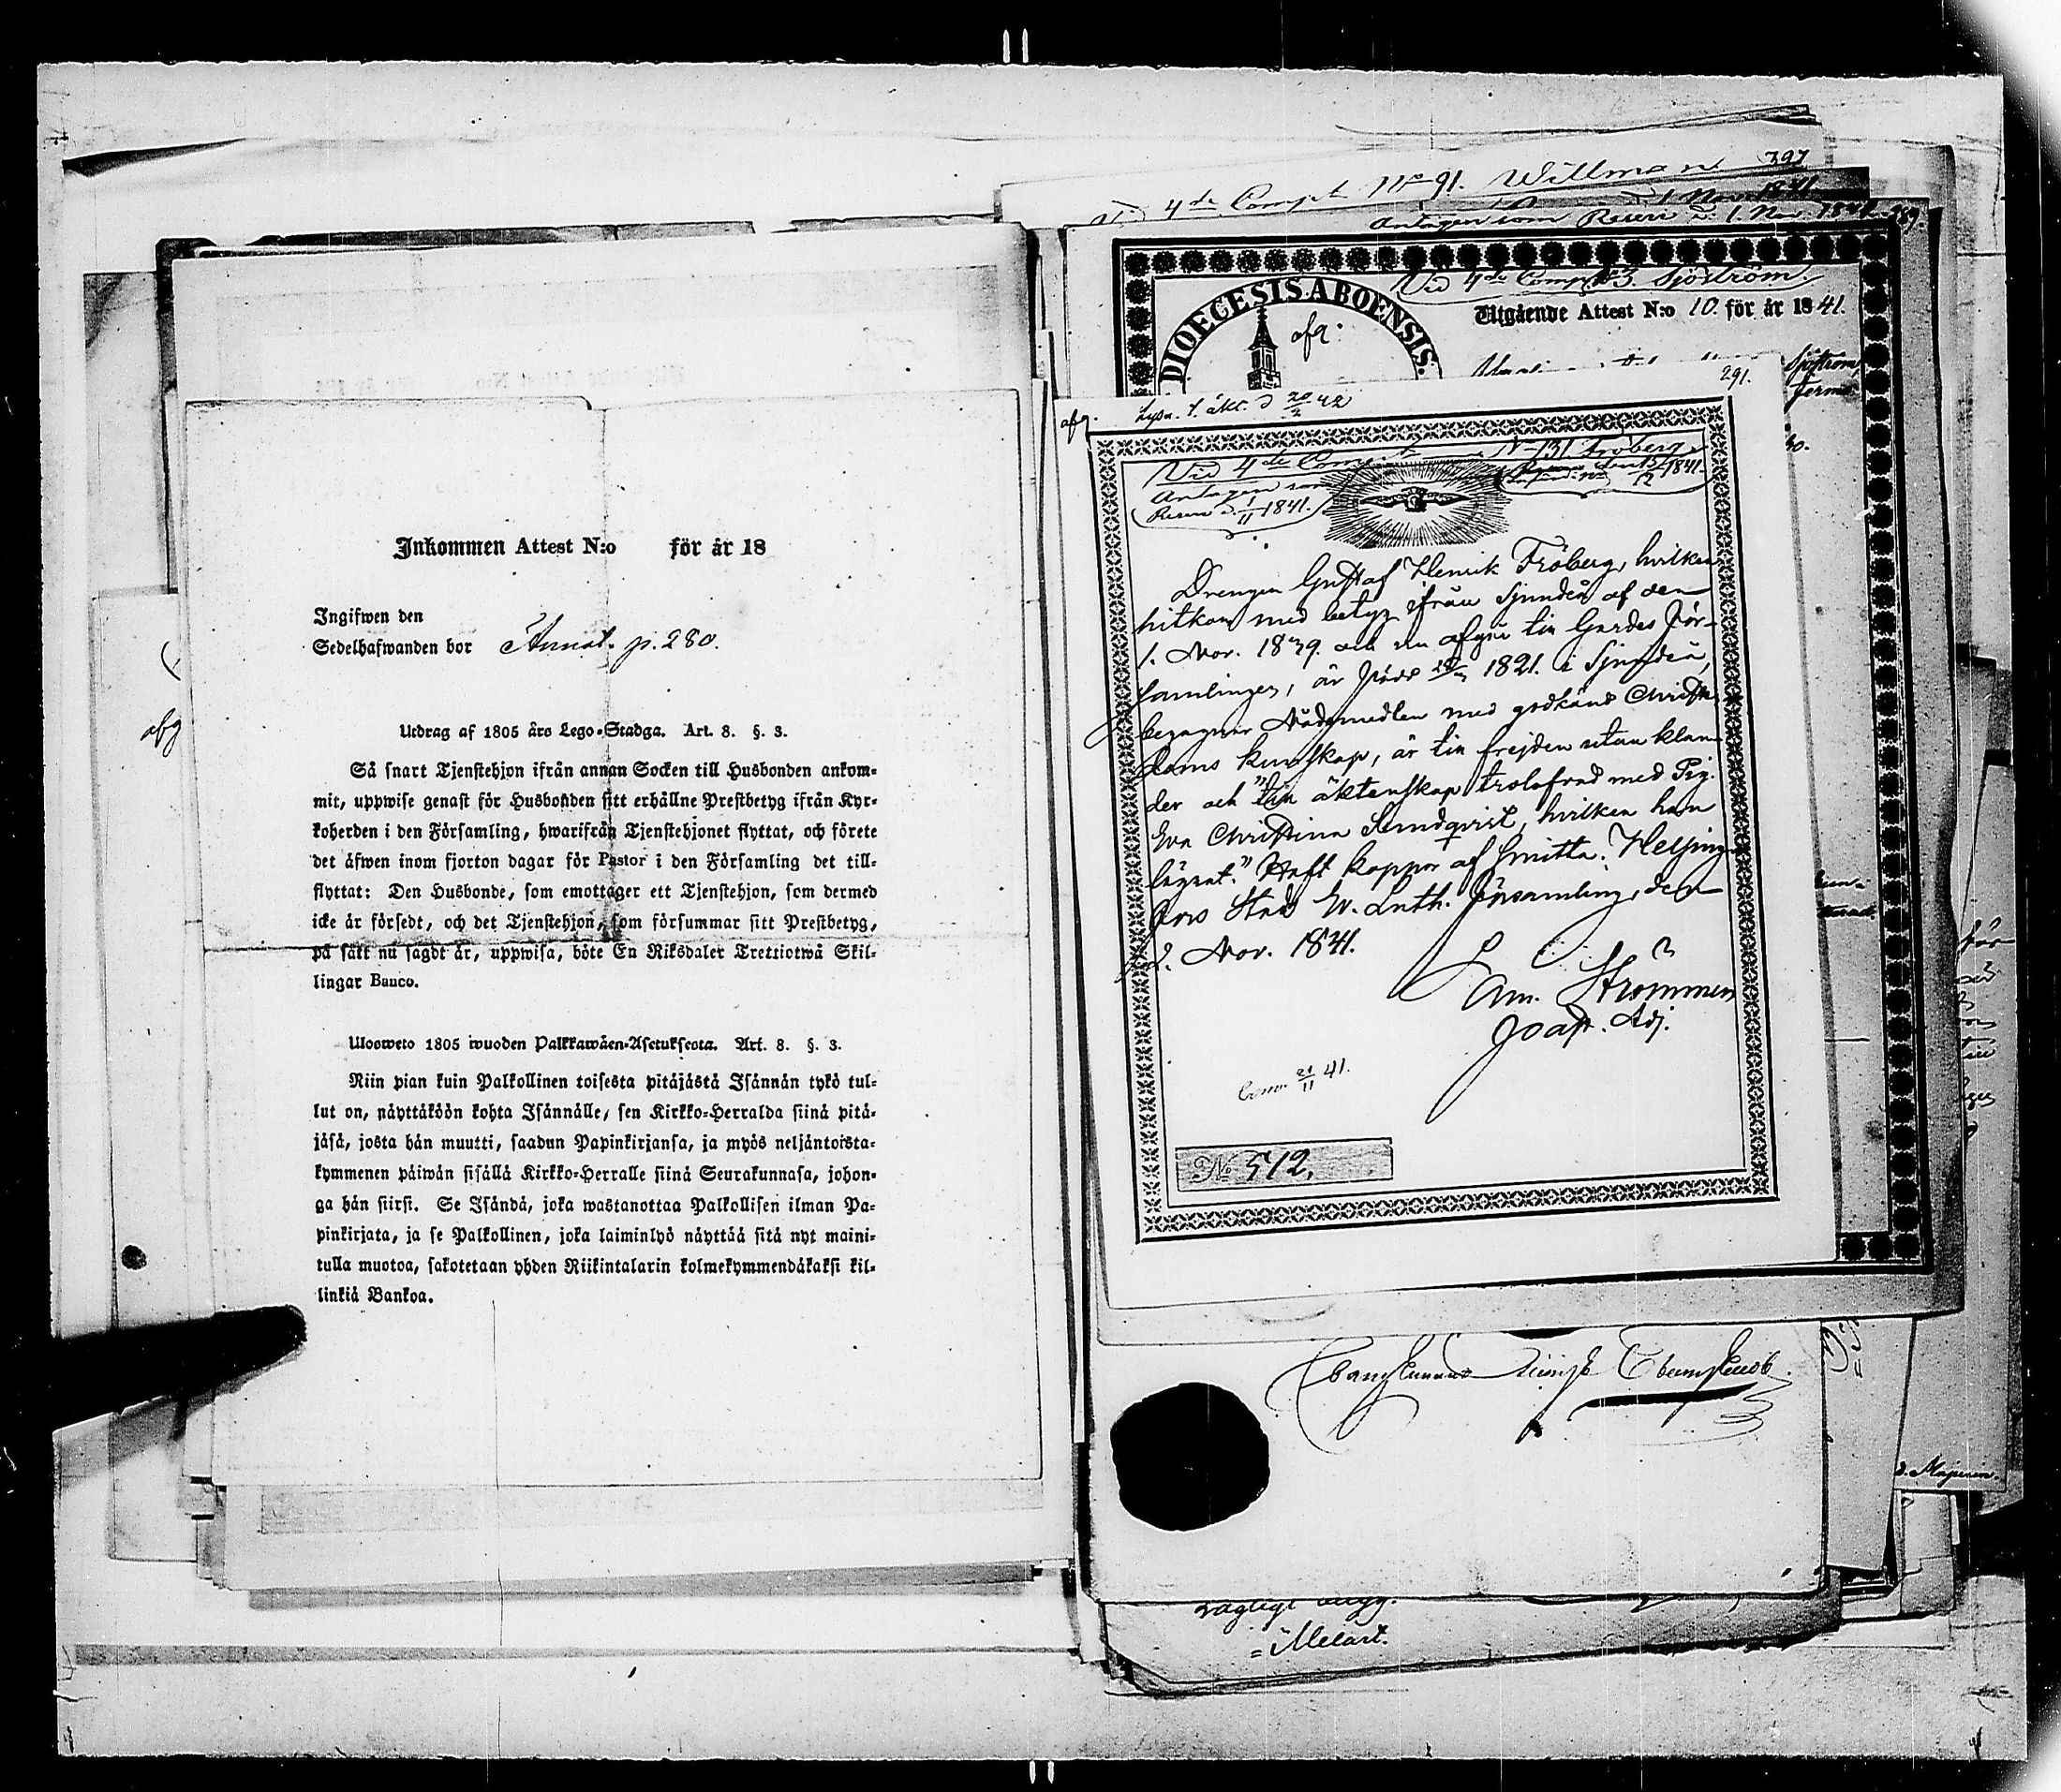 Inkommen Attest N:o för år 18
Ingifwen den
Sedelhafwanden bor Annot. p. 280.
Utdrag af 1805 års Lego-Stadga. Art. 8. §. 3.
Så snart Tjenstehjon ifrån annan Socken till Husbonden ankom-
mit, uppwise genast för Husbonden sitt erhållne Prestbetyg ifrån Kyr-
koherden i den Församling, hwarifrån Tjenstehjonet flyttat, och förete
det äfwen inom fjorton dagar för Pastor i den Församling det till-
flyttat: Den Husbonde, som emottager ett Tjenstehjon, som dermed
icke är försedt, och det Tjenstehjon, som försummar sitt Prestbetyg,
på sätt nu sagdt är, uppwisa, böte En Riksdaler Trettiotwå Skil-
lingar Banco.
Ulosweto 1805 wuoden Palkkawäen-Asetuksesta. Art. 8. §. 3.
Niin pian kuin Palkollinen toisesta pitäjästä Isännän tykö tul-
lut on, näyttäköön kohta Isännälle, sen Kirkko-Herralda siinä pitä-
jäsä, josta hän muutti, saadun Papinkirjansa, ja myös neljäntoista-
kymmenen päiwän sisällä Kirkko-Herralle siinä Seurakunnasa, johon-
ga hän siirsi. Se Isändä, joka wastanottaa Palkollisen ilman Pa-
pinkirjata, ja se Palkollinen, joka laiminlyö näyttää sitä nyt maini-
tulla muotoa, sakotetaan yhden Riikintalarin kolmekymmendäkaksi kil-
linkiä Bankoa.
afg
397
Vid 4de Comp:t N:o 91. Willman
d. 1 Nov. 1841
Antagen som Reserv d. 1 Nov. 1841 289.
Vid 4de Comp. N:o 3. Sjöström.
DIOECESIS ABOENSIS.
afg:
Utgående Attest N:o 10. för år 1841.
Sjöström,
291.
afg. lysn. t. äkt. d 20/2 42
Vid 4de Comp:t N:o 131 Fröberg
Antagen som
Reserv d. 1/11 1841.
12 1841.
Drengen Gustaf Henrik Fröberg, hvilken
hitkom med betyg ifrån Sjundeå af den
1. Nov. 1839. och nu afgår till Gardes För-
samlingen, är född 1821. i Sjundeå,
begagnar Nådemedlen med godkänd Christen-
doms kunskap, är till frejden utan klan-
der och "till äktenskap trolofvad med Pig.
Eva Christina Sundqvist, hvilken han
lägrat." Haft koppor af smitta. Helsing-
fors Stads Ev. Luth. församling, den
2. Nov. 1841.
Am. Strömmer
Joap. Adj.
Com. 21/11 41.
N:o 512.
dagligt
= Melart.